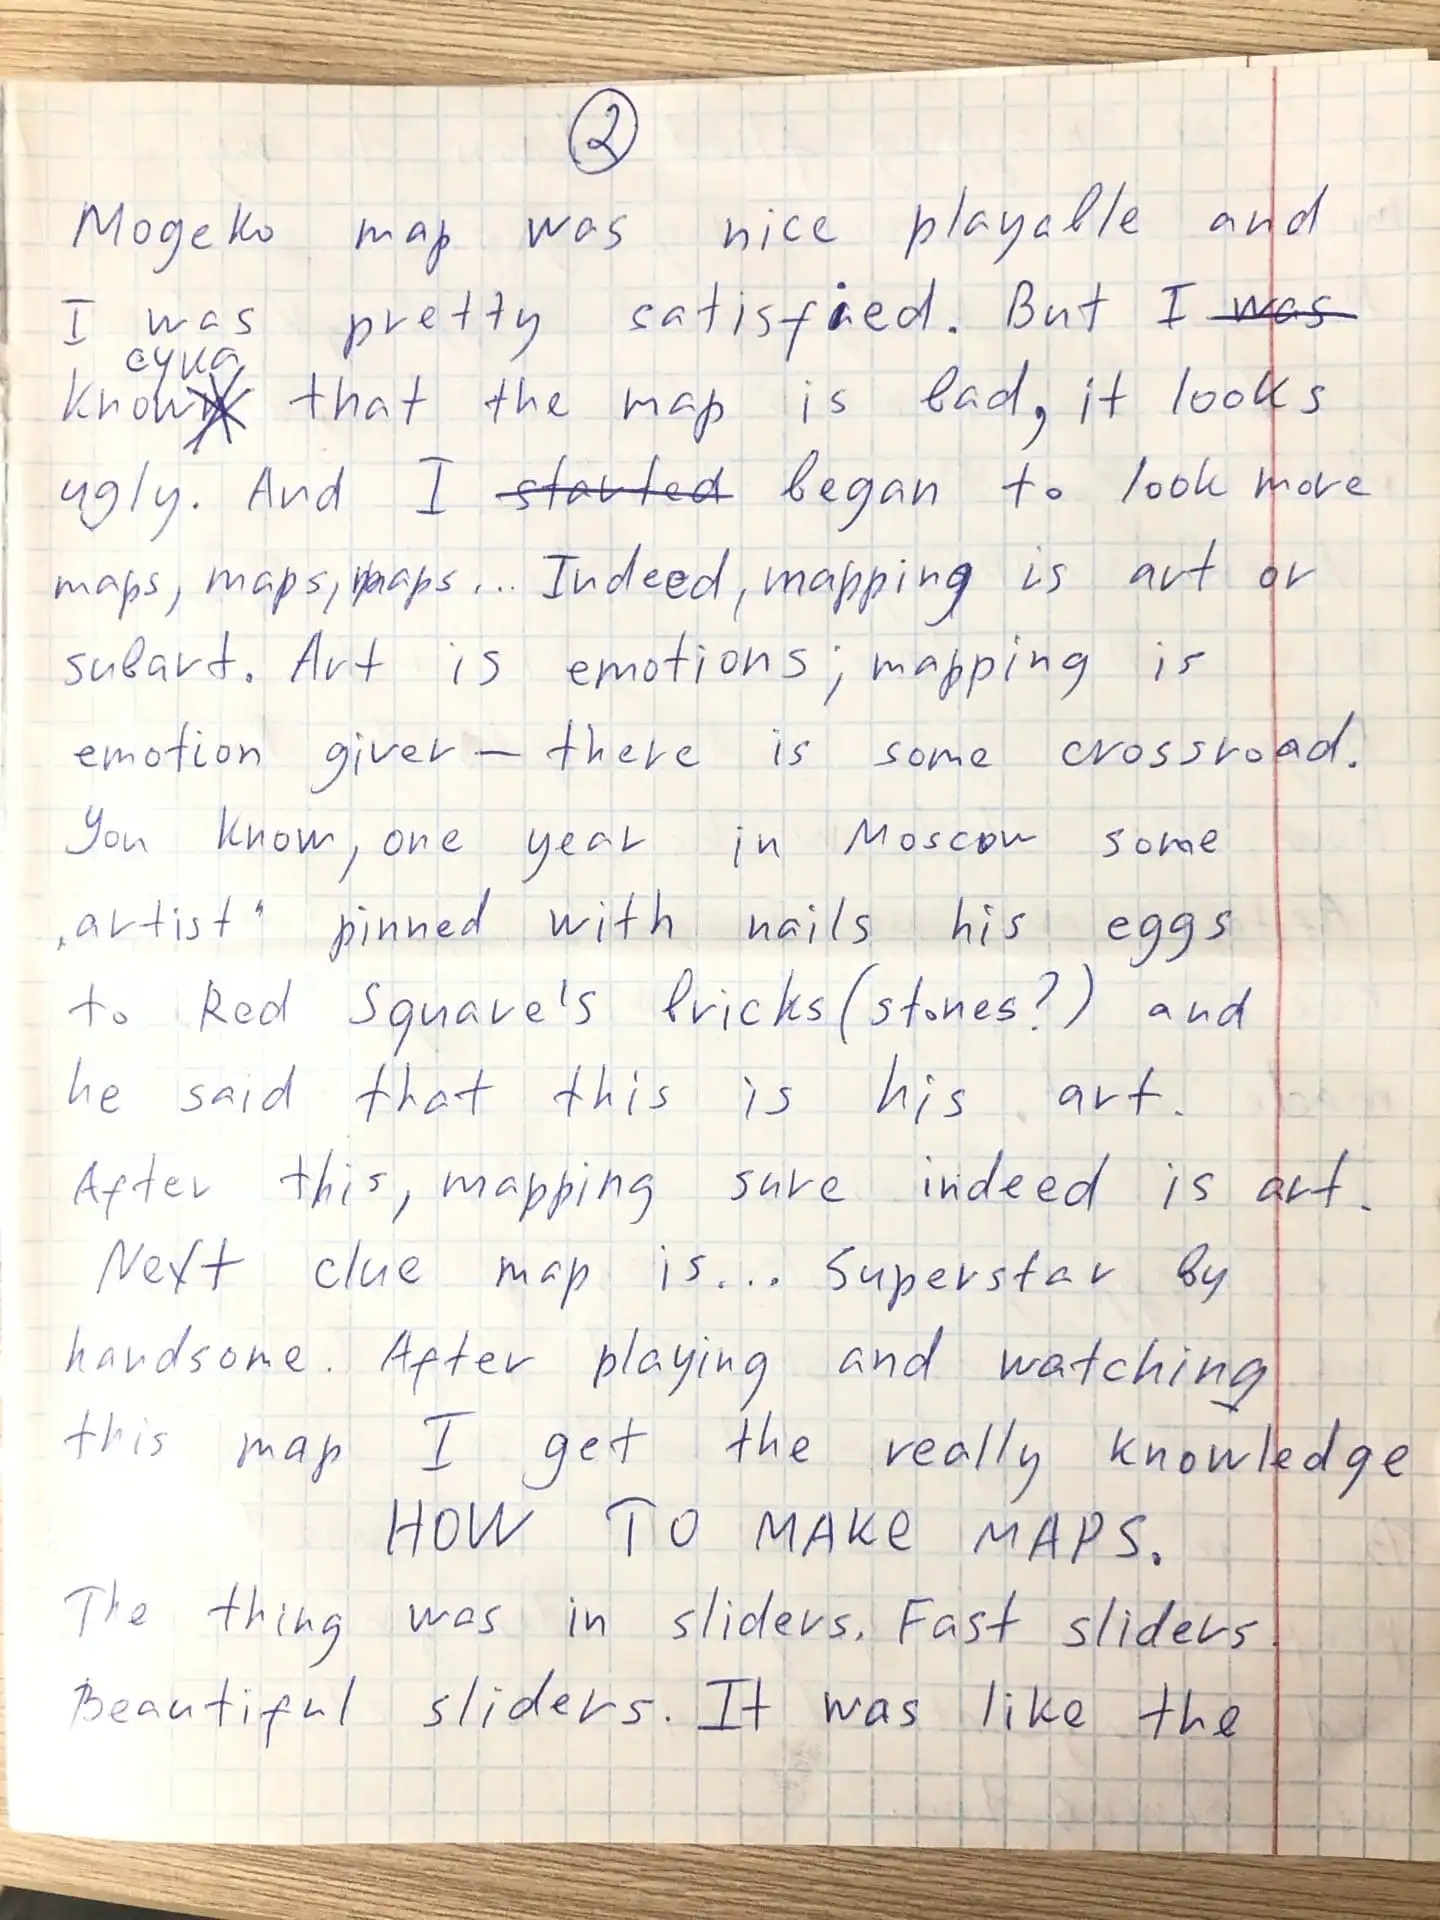 2
Mogeko map was nice playable and
I was pretty satisfied. But I was
сука
know that the map is bad, it looks
ugly. And I started began to look more
maps, maps, maps... Indeed, mapping is art or
subart. Art is emotions; mapping is
emotion giver — there is some crossroad.
You know, one year in Moscow some
„artist“ pinned with nails his eggs
to Red Square's bricks (stones?) and
he said that this is his art.
After this, mapping sure indeed is art.
Next clue map is... Superstar by
handsome. After playing and watching
this map I get the really knowledge
HOW TO MAKE MAPS.
The thing was in sliders. Fast sliders.
Beautiful sliders. It was like the